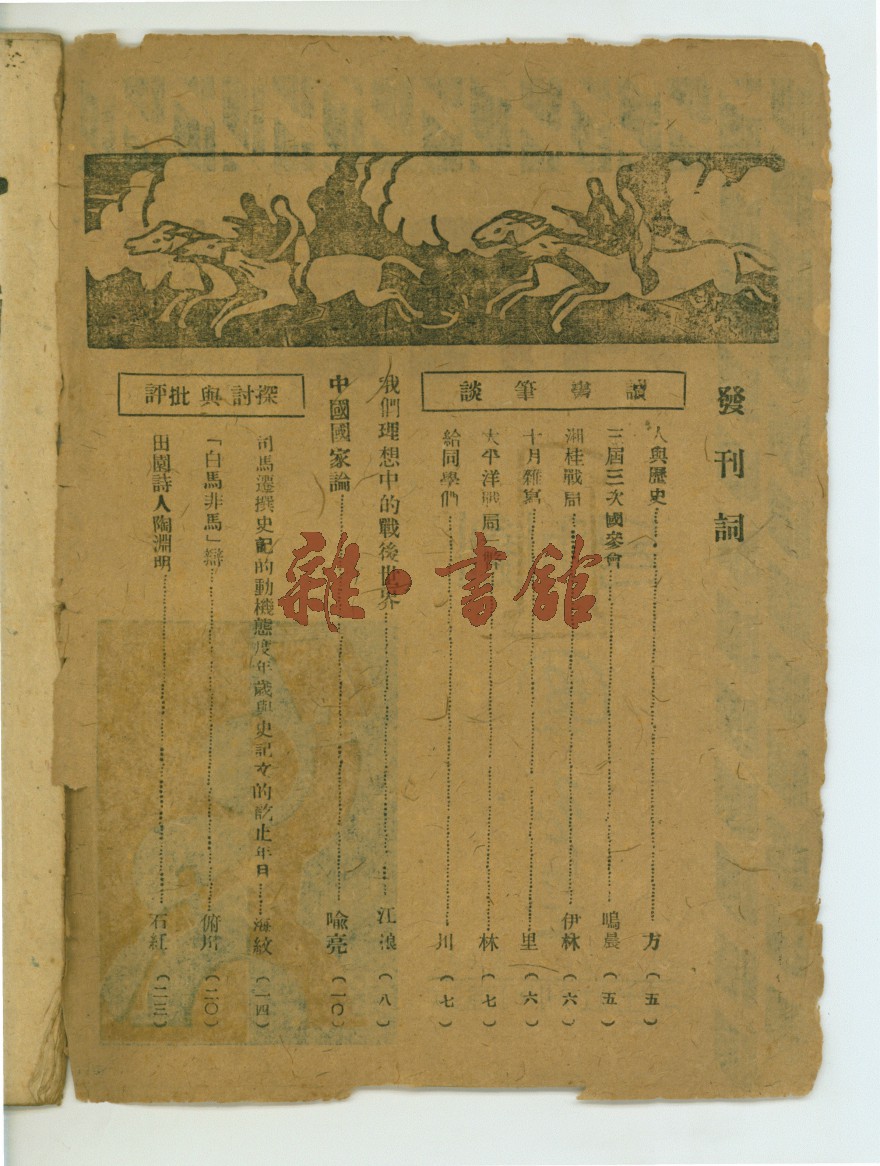 發刊詞
讀書筆談
人與歷史 方 （五）
三屆三次國參會 鳴晨 （五）
湘桂戰局 伊林 （六）
十月雜寫 里 （六）
太平洋戰局一瞥 林 （七）
給同學們 川 （七）
我們理想中的戰後世界 江浪 （八）
中國國家論 喻亮 （一〇）
探討與批評
司馬遷撰史記的動機態度年歲與史記文的訖止年日 海紋 （一四）
「白馬非馬」辯 俯川 （二〇）
田園詩人陶淵明 石紅 （二三）
雜·書館